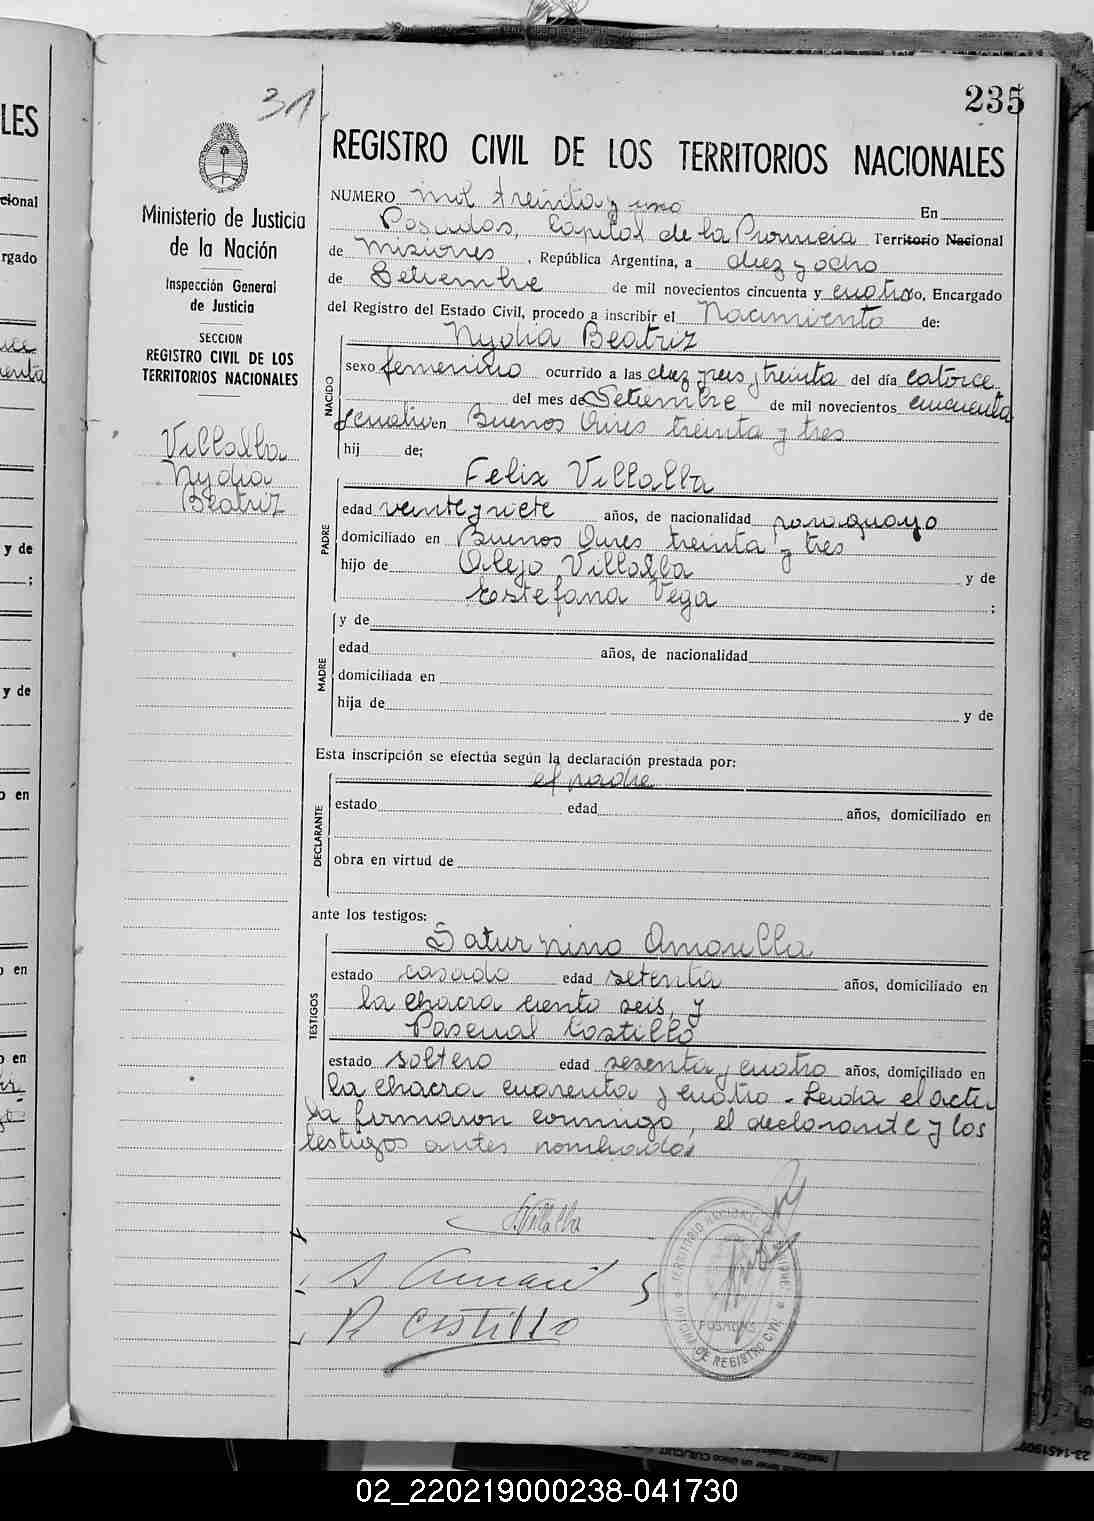 31
235
LES
REGISTRO CIVIL DE LOS TERRITORIOS NACIONALES
Ministerio de Justicia
de la Nación
Inspección General
de Justicia
SECCION
REGISTRO CIVIL DE LOS
TERRITORIOS NACIONALES
Villalba
Nydia
Beatriz
NUMERO mil treinta y uno En
Posadas, Capital de la Provincia Territorio Nacional
de Misiones, República Argentina, a diez y ocho
de Setiembre de mil novecientos cincuenta y cuatro, Encargado
del Registro del Estado Civil, procedo a inscribir el Nacimiento de:
NACIDO
Nydia Beatriz
sexo femenino ocurrido a las diez y seis y treinta del día catorce
del mes de Setiembre de mil novecientos cincuenta
y cuatro en Buenos Aires treinta y tres
hij de;
PADRE
Felix Villalba
edad veinte y siete años, de nacionalidad paraguayo
domiciliado en Buenos Aires treinta y tres
hijo de Alejo Villalba y de
Estefana Vega ;
MADRE
y de
edad años, de nacionalidad
domiciliada en
hija de y de
Esta inscripción se efectúa según la declaración prestada por:
DECLARANTE
el padre
estado edad años, domiciliado en
obra en virtud de
ante los testigos:
TESTIGOS
Saturnino Amarilla
estado casado edad setenta años, domiciliado en
la chacra ciento seis, y
Pascual Costillo
estado soltero edad sesenta y cuatro años, domiciliado en
la chacra cuarenta y cuatro - Leida el acta
la firmaron conmigo, el declarante y los
testigos antes nombrados
Villalba
S Amari S
P Costillo
TERRITORIO NACIONAL DE MISIONES
POSADAS
OFICINA DE REGISTRO CIVIL
cional
rgado
y de
;
y de
o en
o en
o en
02_220219000238-041730